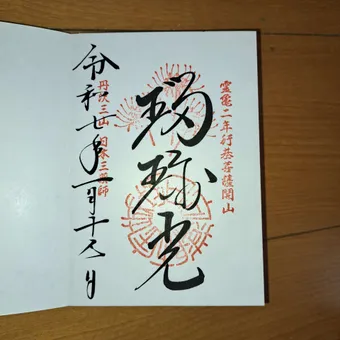 霊亀二年行基菩薩開山
瑠璃光
丹沢三山 日本三薬師
令和七年一月十八日